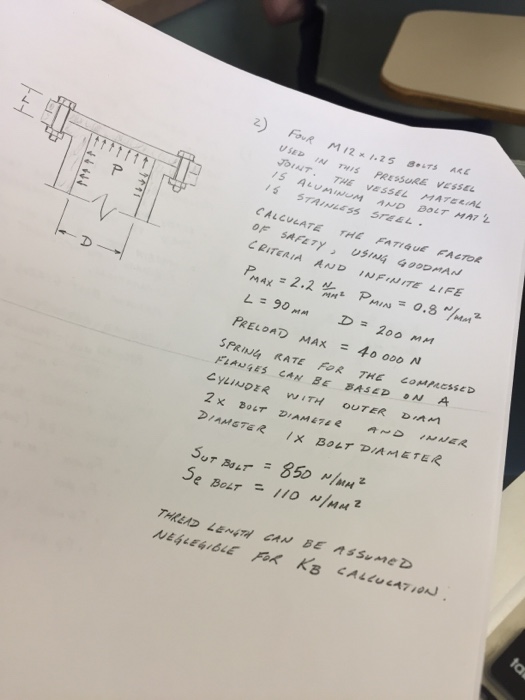 2) FOUR M12 x 1.25 BOLTS ARE
USED IN THIS PRESSURE VESSEL
JOINT. THE VESSEL MATERIAL
IS ALUMINUM AND BOLT MAT'L
IS STAINLESS STEEL.
CALCULATE THE FATIGUE FACTOR
OF SAFETY, USING GOODMAN
CRITERIA AND INFINITE LIFE
PMAX = 2.2 N/MM² PMIN = 0.8 N/MM²
L = 90 MM D = 200 MM
PRELOAD MAX = 40 000 N
SPRING RATE FOR THE COMPRESSED
FLANGES CAN BE BASED ON A
CYLINDER WITH OUTER DIAM
2X BOLT DIAMETER AND INNER
DIAMETER 1X BOLT DIAMETER
SUT BOLT = 850 N/MM²
Se BOLT = 110 N/MM²
THREAD LENGTH CAN BE ASSUMED
NEGLEGIBLE FOR KB CALCULATION.
L
P
D